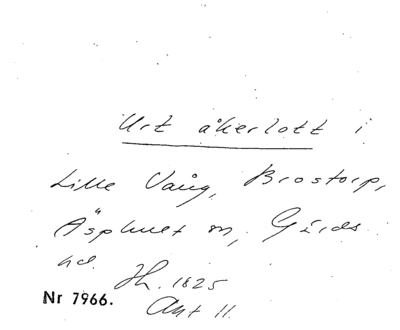 Urt åkerlott i
Lille Vång, Brostorp,
Äsphult sn, Gärds
hd. Jh. 1825
Nr 7966. Akt 11.